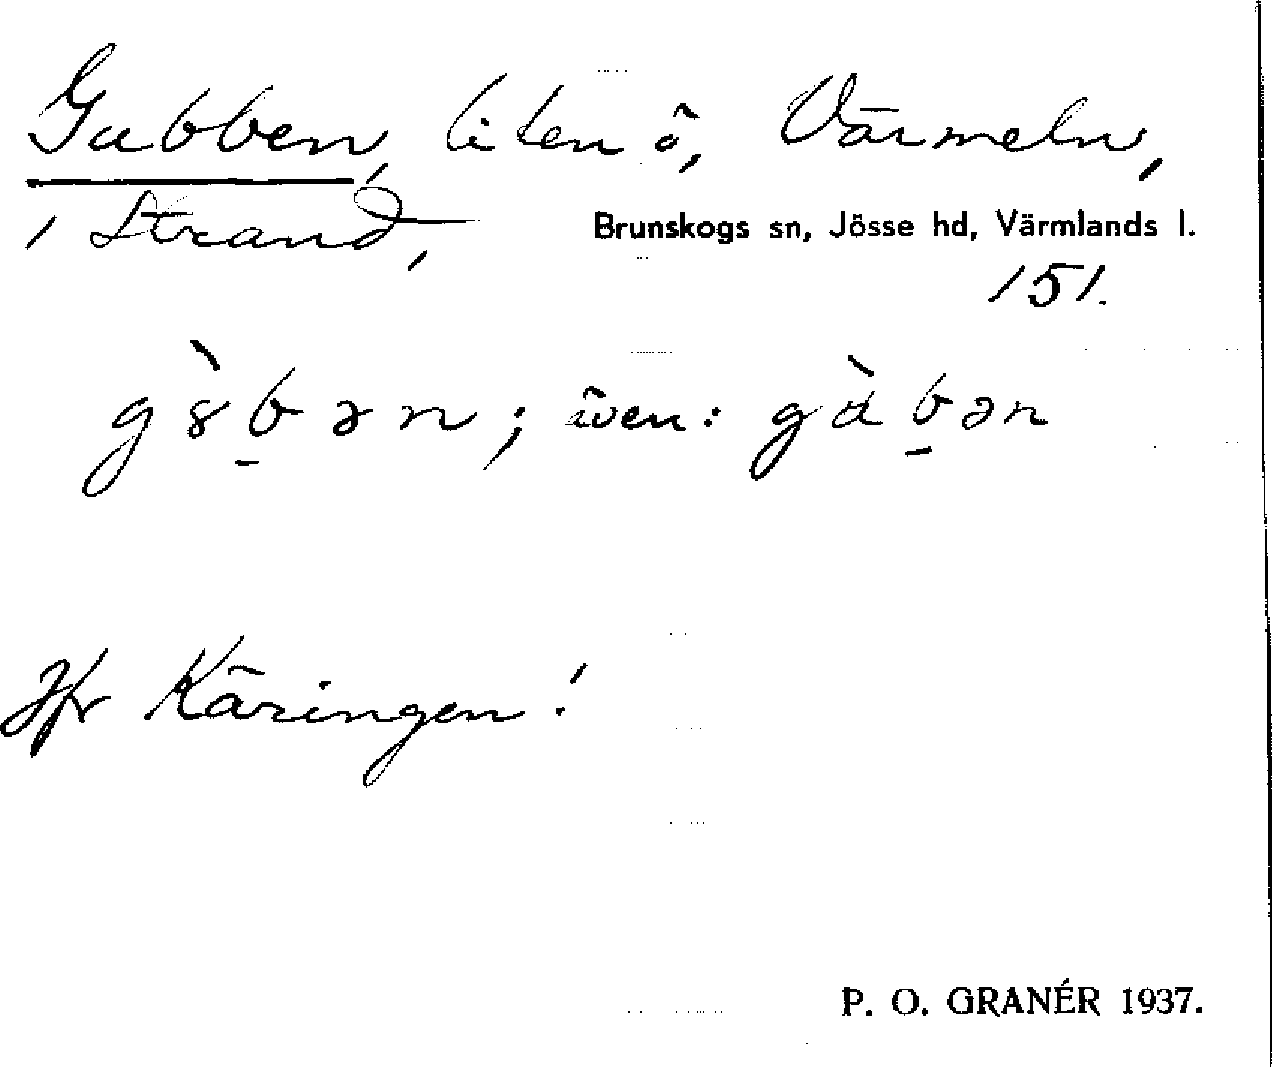 Gubben, liten ö, Värmeln,
i Strand,
Brunskogs sn, Jösse hd, Värmlands l.
151.
även:
Jfr Käringen!
P. O. GRANÉR 1937.